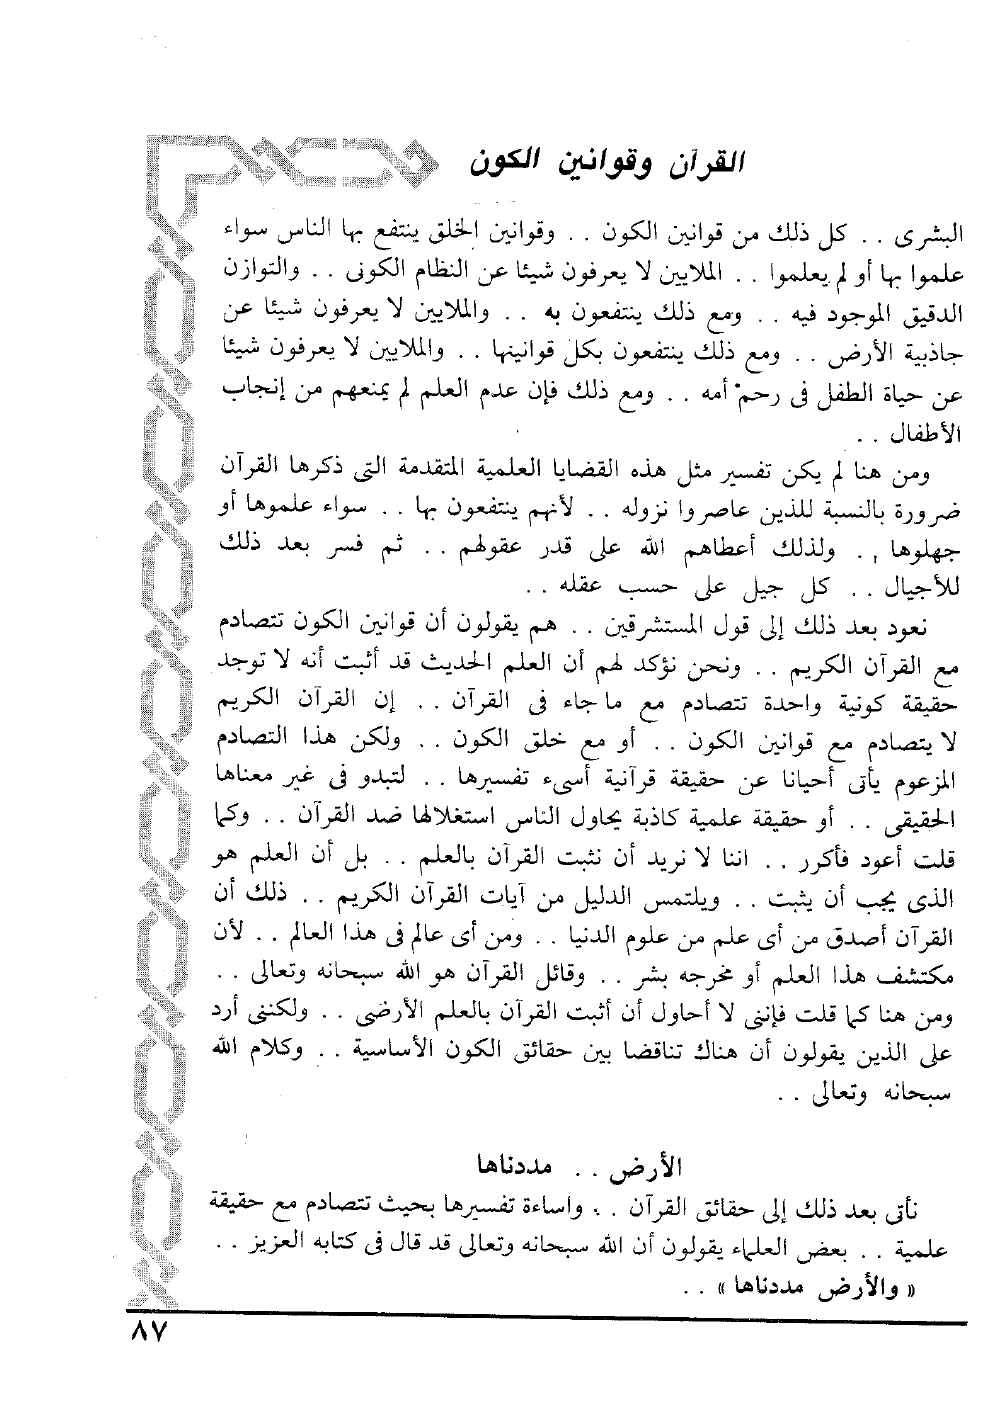 القرآن وقوانين الكون
البشرى . . كل ذلك من قوانين الكون . . وقوانين الخلق ينتفع بها الناس سواء
علموا بها أو لم يعلموا . . الملايين لا يعرفون شيئا عن النظام الكونى . . والتوازن
الدقيق الموجود فيه . . ومع ذلك ينتفعون به . . والملايين لا يعرفون شيئا عن
جاذبية الأرض . . ومع ذلك ينتفعون بكل قوانينها . . والملايين لا يعرفون شيئا
عن حياة الطفل فى رحم أمه . . ومع ذلك فإن عدم العلم لم يمنعهم من إنجاب
الأطفال . .
ومن هنا لم يكن تفسير مثل هذه القضايا العلمية المتقدمة التى ذكرها القرآن
ضرورة بالنسبة للذين عاصروا نزوله . . لأنهم ينتفعون بها . . سواء علموها أو
جهلوها . . ولذلك أعطاهم الله على قدر عقولهم . . ثم فسر بعد ذلك
للأجيال . . كل جيل على حسب عقله . .
نعود بعد ذلك إلى قول المستشرقين . . هم يقولون أن قوانين الكون تتصادم
مع القرآن الكريم . . ونحن نؤكد لهم أن العلم الحديث قد أثبت أنه لا توجد
حقيقة كونية واحدة تتصادم مع ماجاء فى القرآن . . إن القرآن الكريم
لا يتصادم مع قوانين الكون . . أو مع خلق الكون . . ولكن هذا التصادم
المزعوم يأتى أحيانا عن حقيقة قرآنية أسىء تفسيرها . . لتبدو فى غير معناها
الحقيقى . . أو حقيقة علمية كاذبة يحاول الناس استغلالها ضد القرآن . . وكما
قلت أعود فأكرر . . اننا لا نريد أن نثبت القرآن بالعلم . . بل أن العلم هو
الذى يجب أن يثبت . . ويلتمس الدليل من آيات القرآن الكريم . . ذلك أن
القرآن أصدق من أى علم من علوم الدنيا . . ومن أى عالم فى هذا العالم . . لأن
مكتشف هذا العلم أو مخرجه بشر . . وقائل القرآن هو الله سبحانه وتعالى . .
ومن هنا كما قلت فإننى لا أحاول أن أثبت القرآن بالعلم الأرضى . . ولكننى أرد
على الذين يقولون أن هناك تناقضا بين حقائق الكون الأساسية . . وكلام الله
سبحانه وتعالى . .
الأرض . . مددناها
نأتى بعد ذلك إلى حقائق القرآن . . واساءة تفسيرها بحيث تتصادم مع حقيقة
علمية . . بعض العلماء يقولون أن الله سبحانه وتعالى قد قال فى كتابه العزيز . .
« والأرض مددناها » . .
٨٧